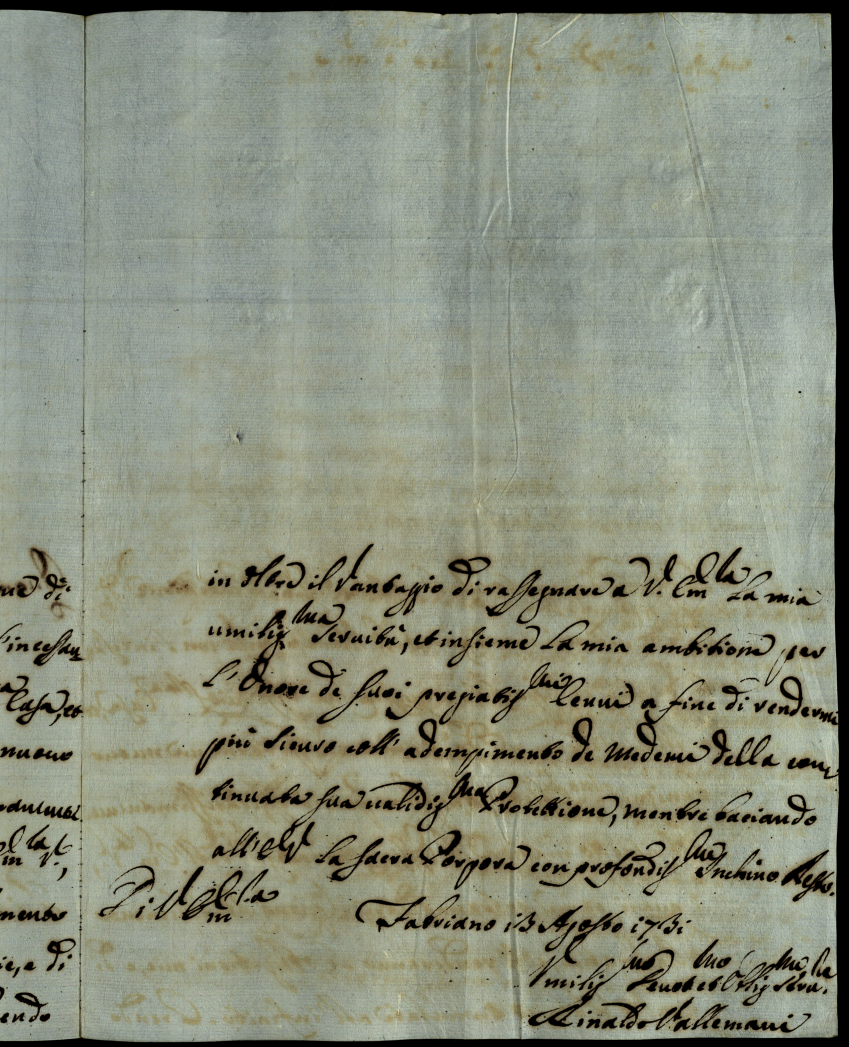 ne di
l'incessan
Casa, et
nuovo
Em.za V.,
mento
ie, e di
endo
in oltre il Vantaggio di rassegnare a V. Em.za La mia
umiliss.ma Servitù, et insieme La mia ambitione per
L'Onore de suoi pregiatiss.mi Cenni a fine di rendermi
più sicuro coll' adempimento de medemi della con
tinuata sua validiss.ma Protettione, mentre baciando
all'E.V. La Sacra Porpora con profondiss.mo Inchino Resto.
Di V. Em.za
Fabriano 13 Agosto 1731
Umiliss.mo Devot.mo et Obblig.mo Serv.re
Rinaldo Vallemani